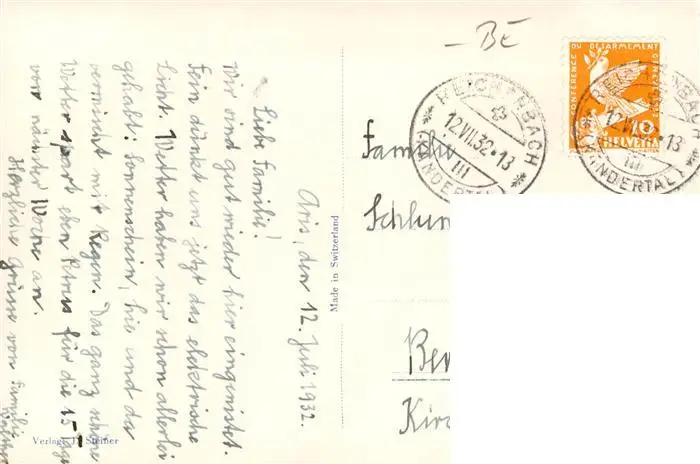 Aris, den 12. Juli 1932.
Liebe Familie!
Wir sind gut wieder hier eingenistet.
Fein dünkt uns jetzt das elektrische
Licht. Wetter haben wir schon allerlei
gehabt: Sonnenschein, hie und da
vermischt mit Regen. Das ganz schöne
Wetter spart eben Petrus für die
von nächster Woche an.
Herzliche Grüsse von Familie
Verlag J. Steiner
Made in Switzerland
– BE
CONFERENCE DU DESARMEMENT GENEVE
10
HELVETIA
REICHENBACH
12.VII.32·13
III
(KANDERTAL)
REICHENBACH
12.VII.32·13
III
(KANDERTAL)
Familie